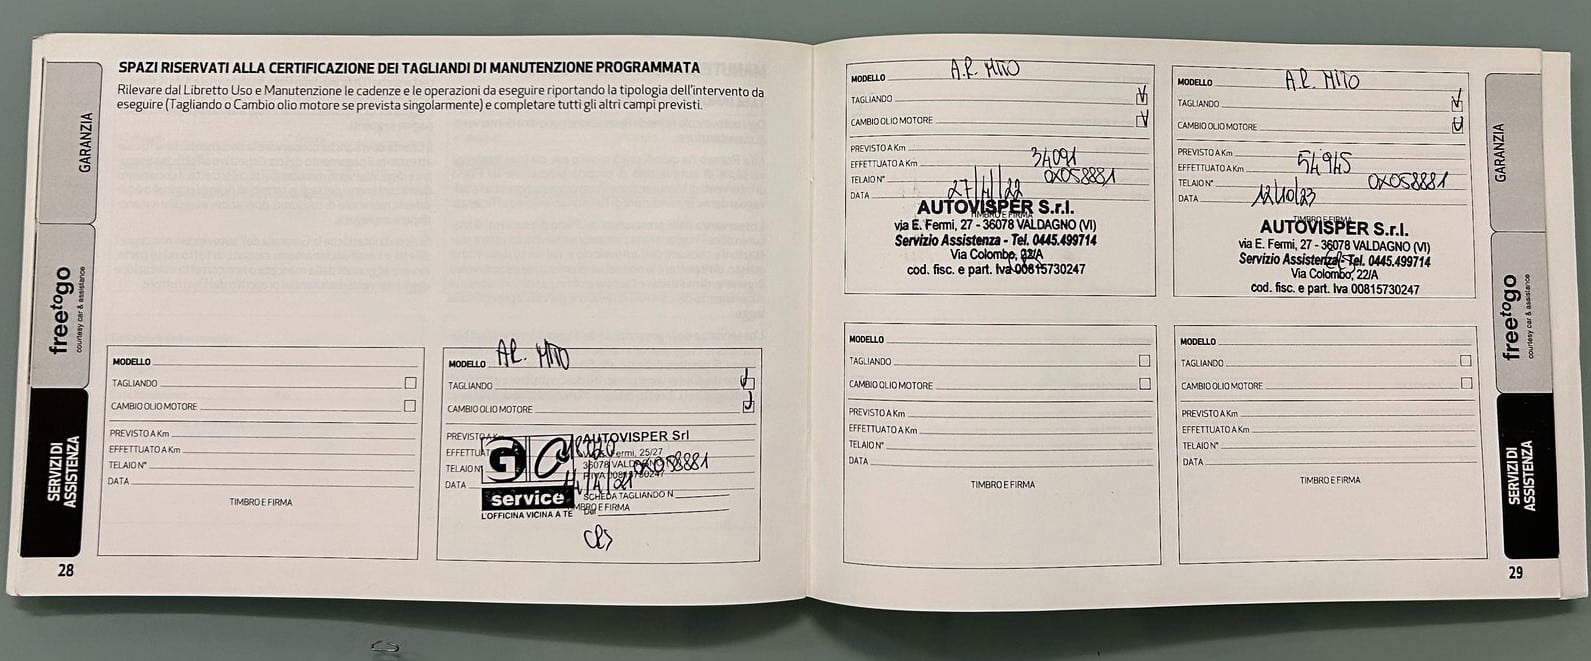 SPAZI RISERVATI ALLA CERTIFICAZIONE DEI TAGLIANDI DI MANUTENZIONE PROGRAMMATA
Rilevare dal Libretto Uso e Manutenzione le cadenze e le operazioni da eseguire riportando la tipologia dell'intervento da
eseguire (Tagliando o Cambio olio motore se prevista singolarmente) e completare tutti gli altri campi previsti.
GARANZIA
freetogo
courtesy car & assistance
SERVIZI DI
ASSISTENZA
MODELLO
TAGLIANDO
CAMBIO OLIO MOTORE
PREVISTO A Km
EFFETTUATO A Km
TELAIO N°
DATA
TIMBRO E FIRMA
MODELLO A.R. MITO
TAGLIANDO
CAMBIO OLIO MOTORE
PREVISTO A Km
AUTOVISPER Srl
Fermi, 25/27
36078 VALDAGNO
TELAIO N° 0X058881
DATA
SCHEDA TAGLIANDO N
TIMBRO E FIRMA
service
L'OFFICINA VICINA A TE
28
MODELLO A.R. MITO
TAGLIANDO
CAMBIO OLIO MOTORE
PREVISTO A Km
EFFETTUATO A Km 34091
TELAIO N° 0X058881
DATA 27/4/22
TIMBRO E FIRMA
AUTOVISPER S.r.l.
via E. Fermi, 27 - 36078 VALDAGNO (VI)
Servizio Assistenza - Tel. 0445.499714
Via Colombo, 22/A
cod. fisc. e part. Iva 00815730247
MODELLO A.R. MITO
TAGLIANDO
CAMBIO OLIO MOTORE
PREVISTO A Km
EFFETTUATO A Km 54945
TELAIO N° 0X058881
DATA 12/10/23
TIMBRO E FIRMA
AUTOVISPER S.r.l.
via E. Fermi, 27 - 36078 VALDAGNO (VI)
Servizio Assistenza - Tel. 0445.499714
Via Colombo, 22/A
cod. fisc. e part. Iva 00815730247
MODELLO
TAGLIANDO
CAMBIO OLIO MOTORE
PREVISTO A Km
EFFETTUATO A Km
TELAIO N°
DATA
TIMBRO E FIRMA
MODELLO
TAGLIANDO
CAMBIO OLIO MOTORE
PREVISTO A Km
EFFETTUATO A Km
TELAIO N°
DATA
TIMBRO E FIRMA
GARANZIA
freetogo
courtesy car & assistance
SERVIZI DI
ASSISTENZA
29